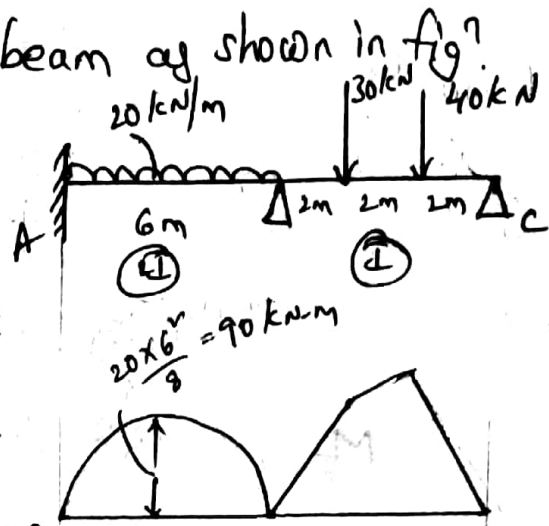 beam as shown in fig?
20 kN/m
30kN
40kN
A
6m
2m
2m
2m
C
I
20×6²/8 = 90 kN-m